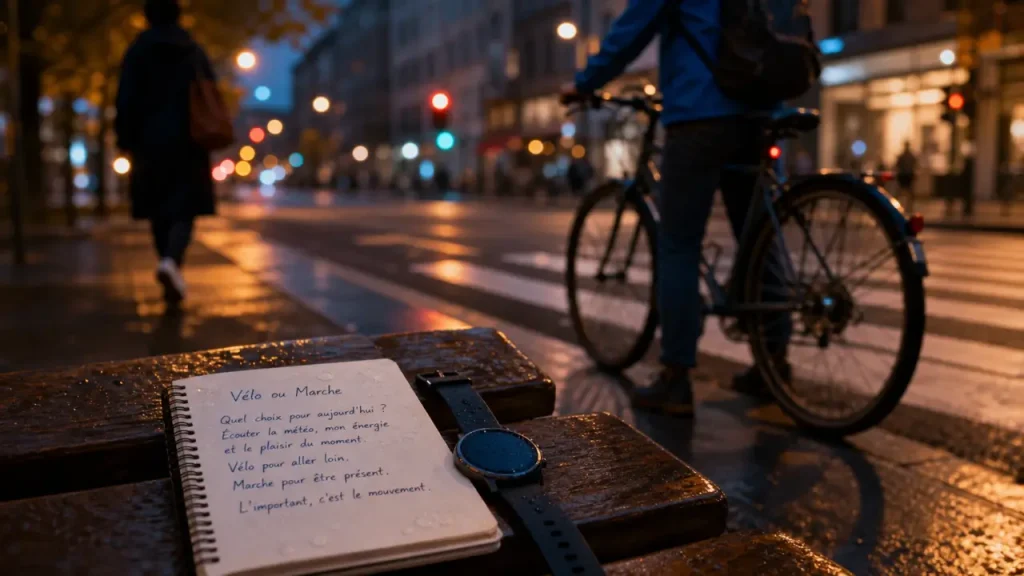 Vélo ou Marche
Quel choix pour aujourd'hui ?
Écouter la météo, mon énergie
et le plaisir du moment.
Vélo pour aller loin.
Marche pour être présent.
L'important, c'est le mouvement.